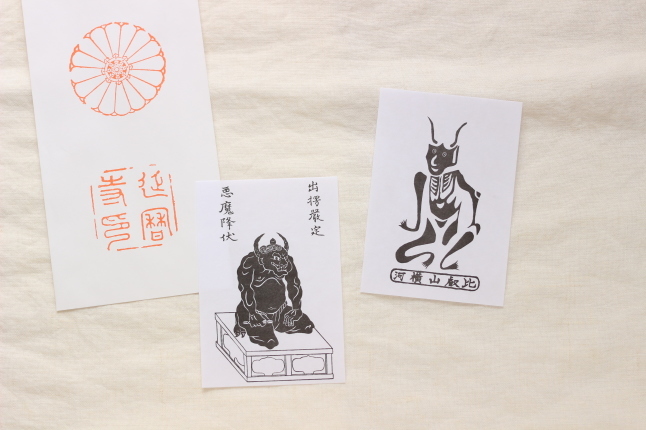 延暦
寺印
出楞嚴定
悪魔降伏
比叡山横河